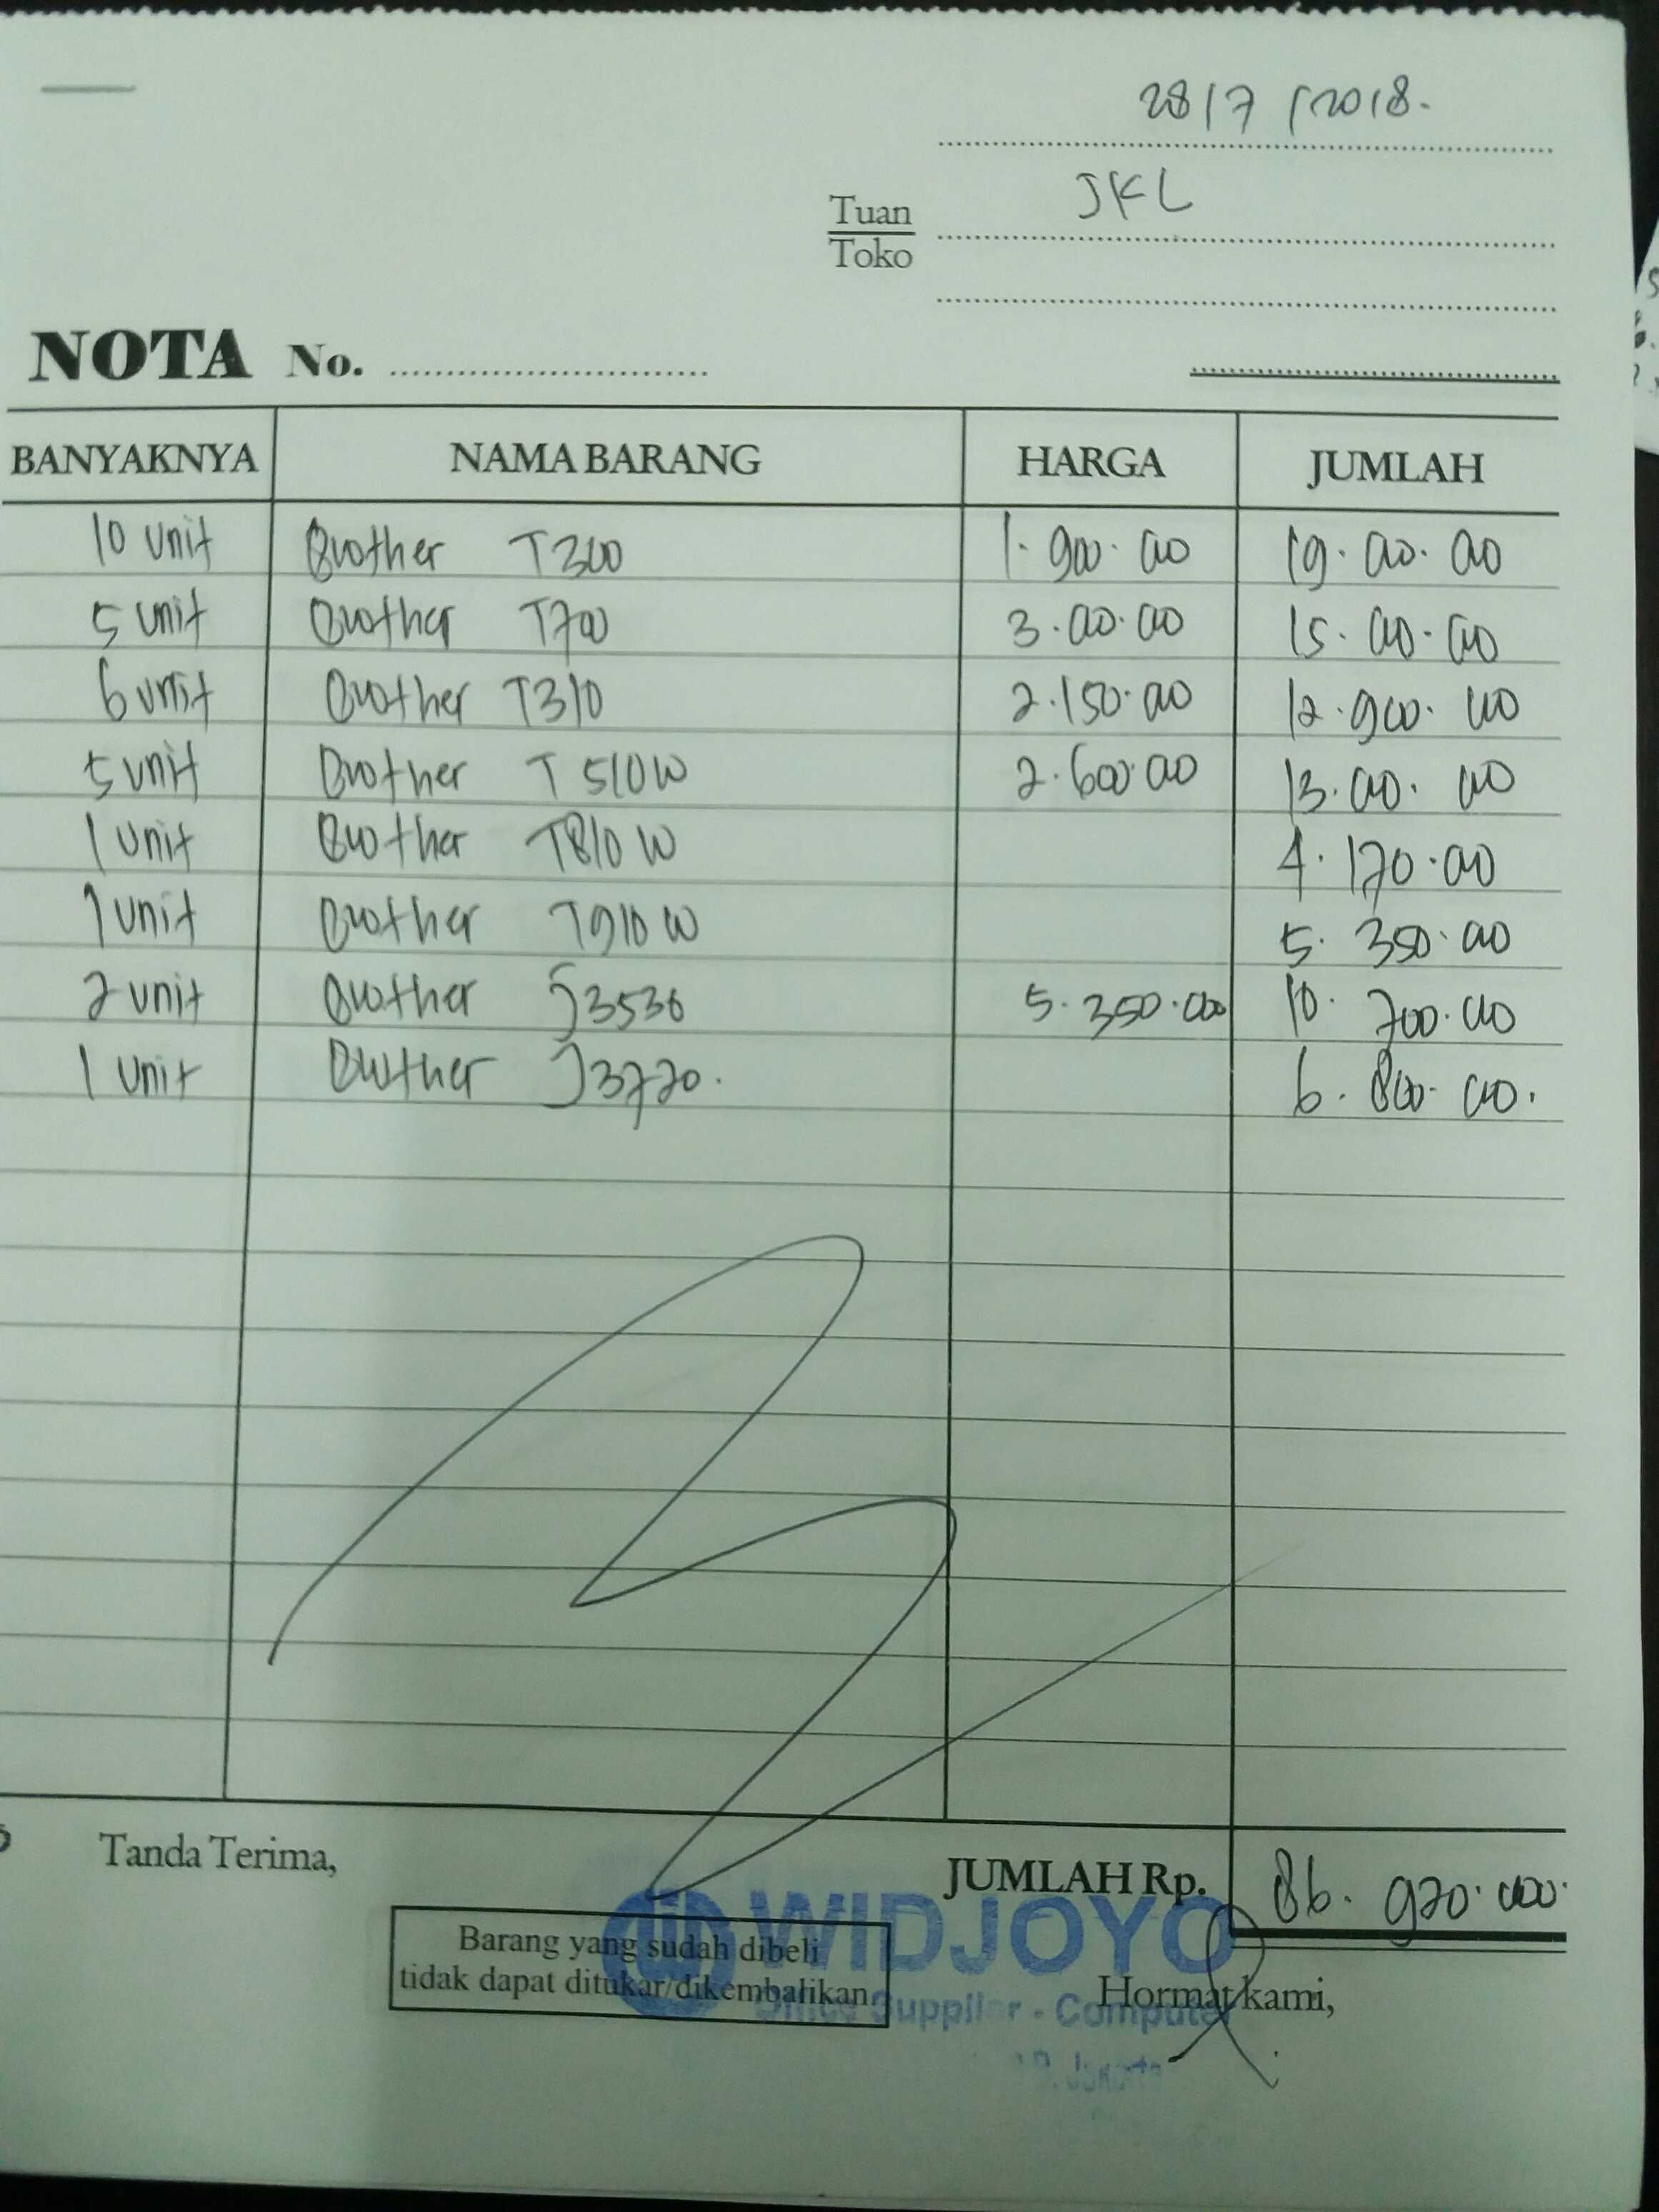 28/7/2018.
JKL
Tuan
Toko
NOTA No. ..............................
BANYAKNYA NAMA BARANG HARGA JUMLAH
10 unit Brother T300 1.900.000 19.000.000
5 unit Brother T700 3.000.000 15.000.000
6 unit Brother T310 2.150.000 12.900.000
5 unit Brother T510W 2.600.000 13.000.000
1 unit Brother T810W 4.170.000
1 unit Brother T910W 5.350.000
2 unit Brother J3530 5.350.000 10.700.000
1 unit Brother J3720. 6.800.000.
Tanda Terima,
JUMLAH Rp. 86.920.000.
WIDJOYO
Barang yang sudah dibeli
tidak dapat ditukar/dikembalikan
Office Supplier - Computer
Hormat kami,